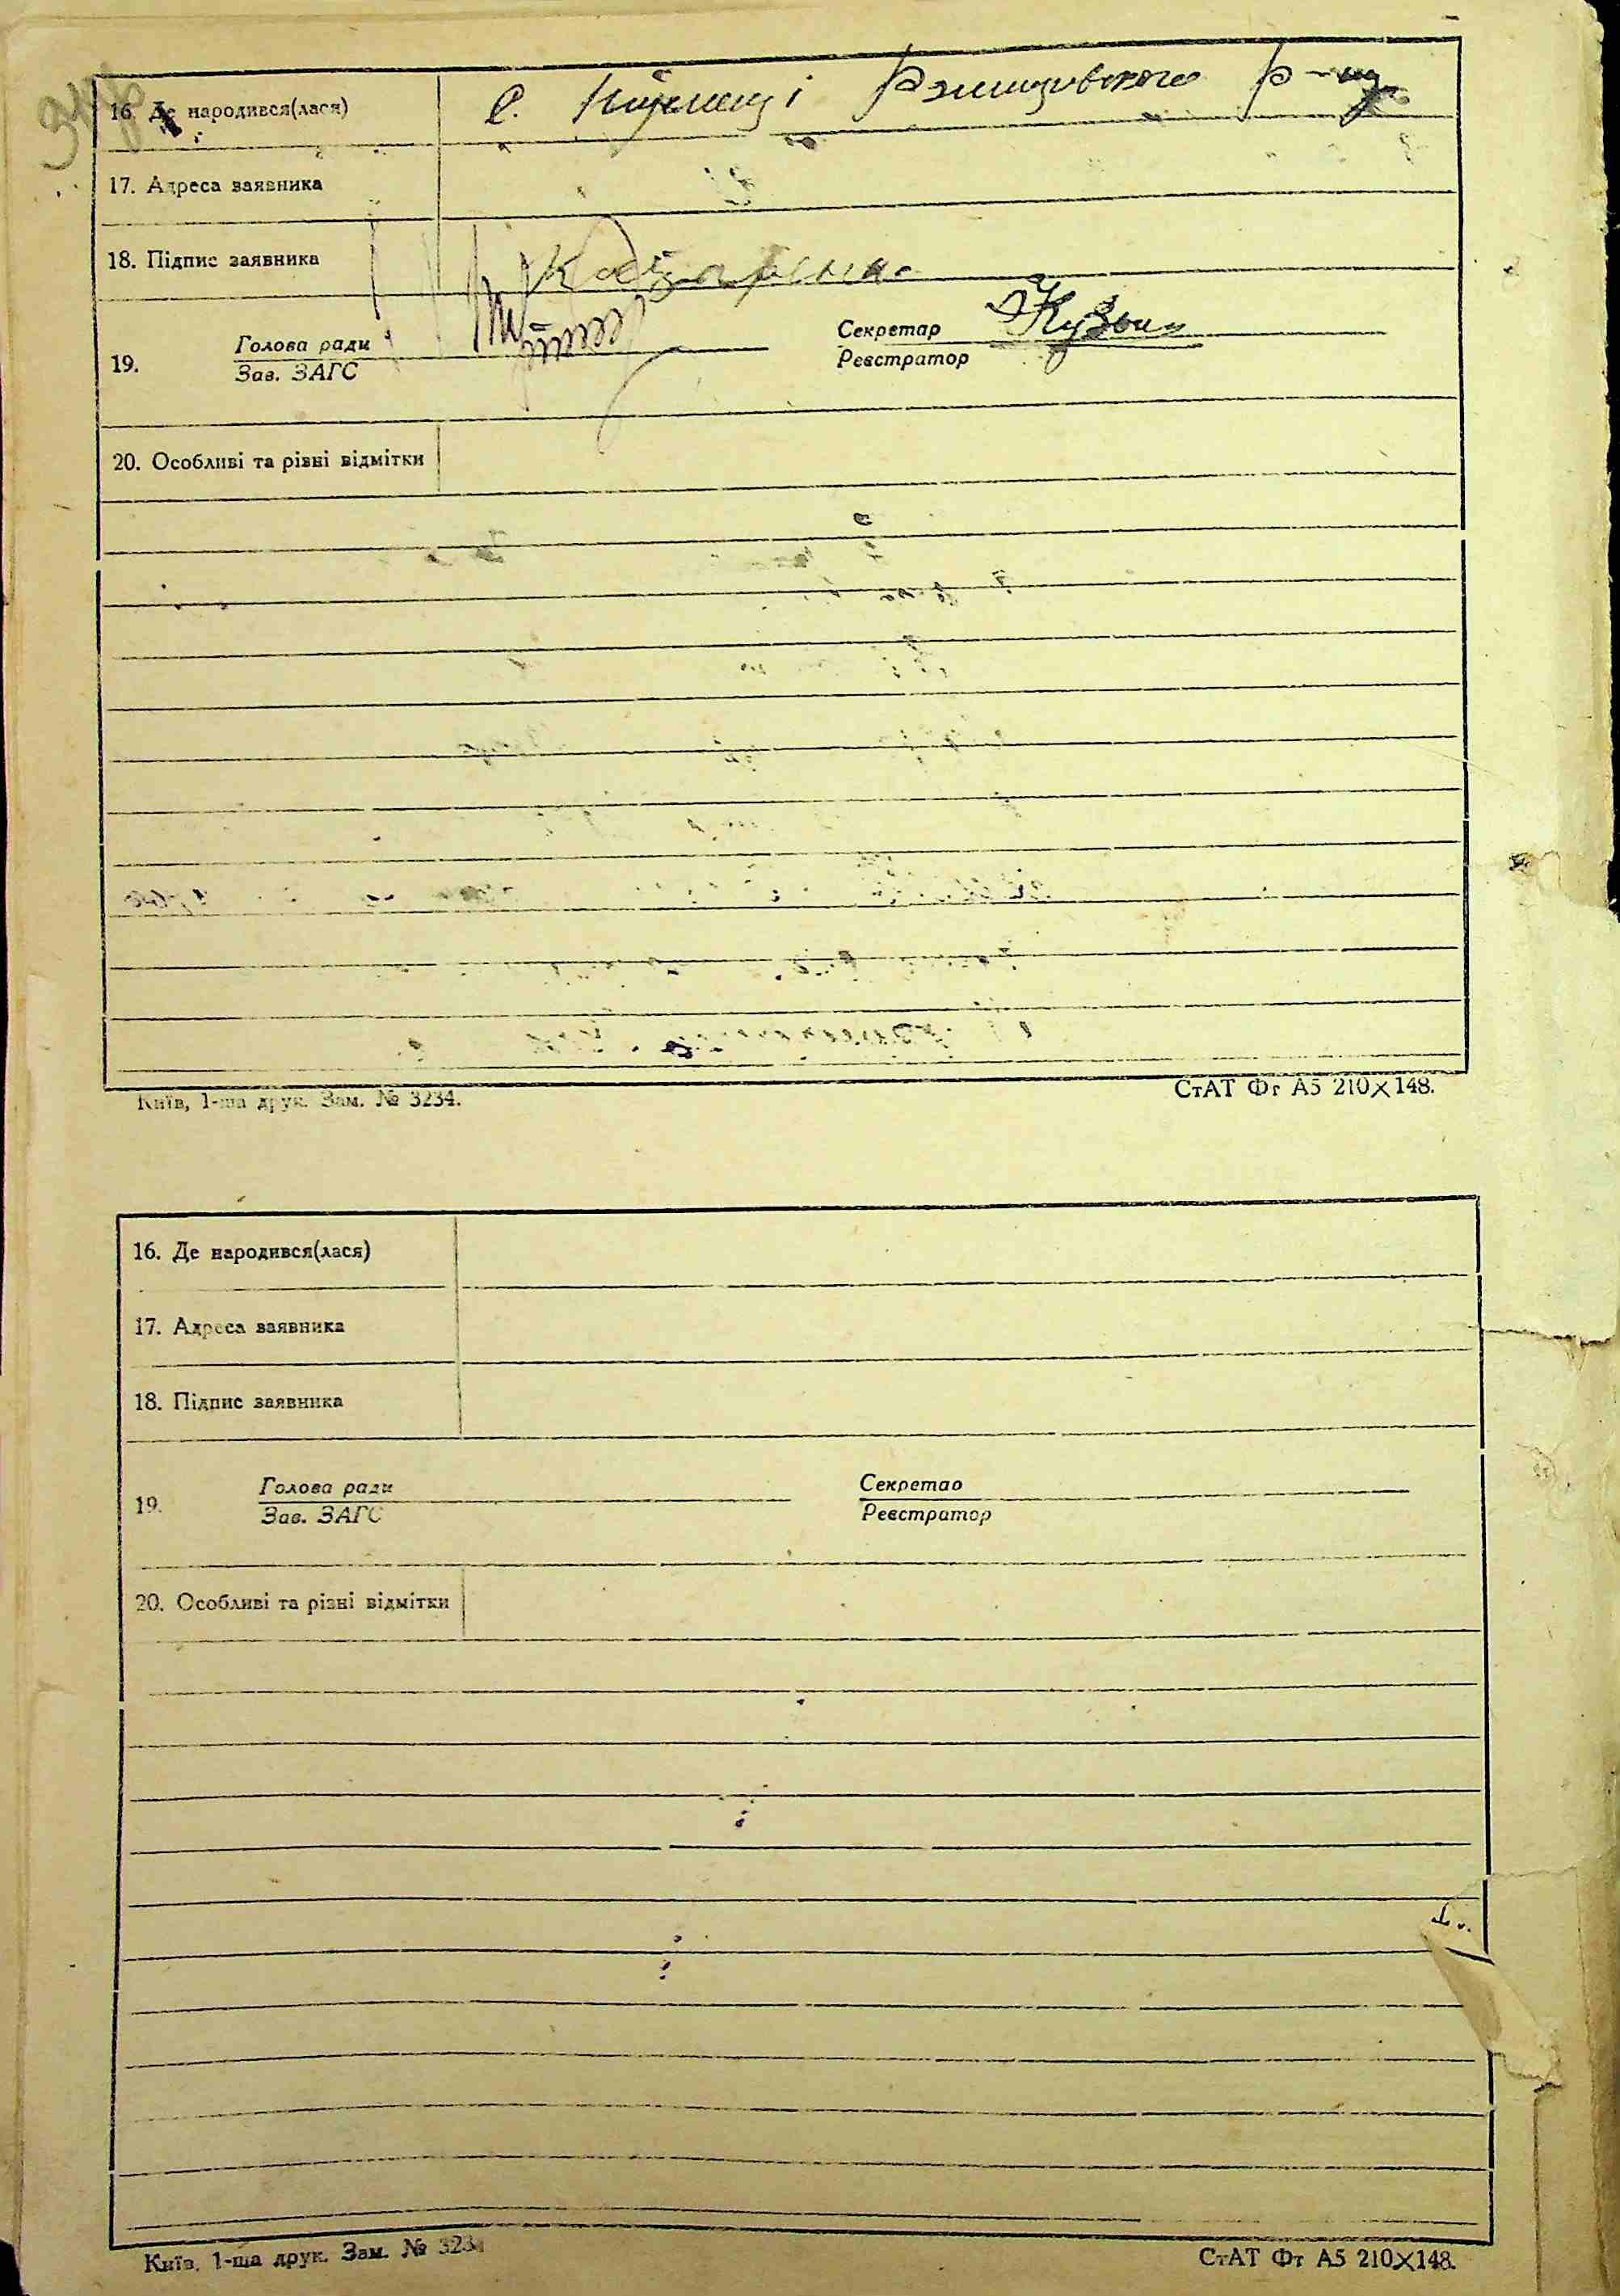 16. Де народився(лася) с. Ржищівського р-ну
17. Адреса заявника
18. Підпис заявника
19. Голова ради Секретар Кузьм
Зав. ЗАГС Реєстратор
20. Особливі та різні відмітки
Київ, 1-ша друк. Зам. № 3234. СтАТ Фт А5 210×148.
16. Де народився(лася)
17. Адреса заявника
18. Підпис заявника
19. Голова ради Секретар
Зав. ЗАГС Реєстратор
20. Особливі та різні відмітки
Київ, 1-ша друк. Зам. № 323 СтАТ Фт А5 210×148.